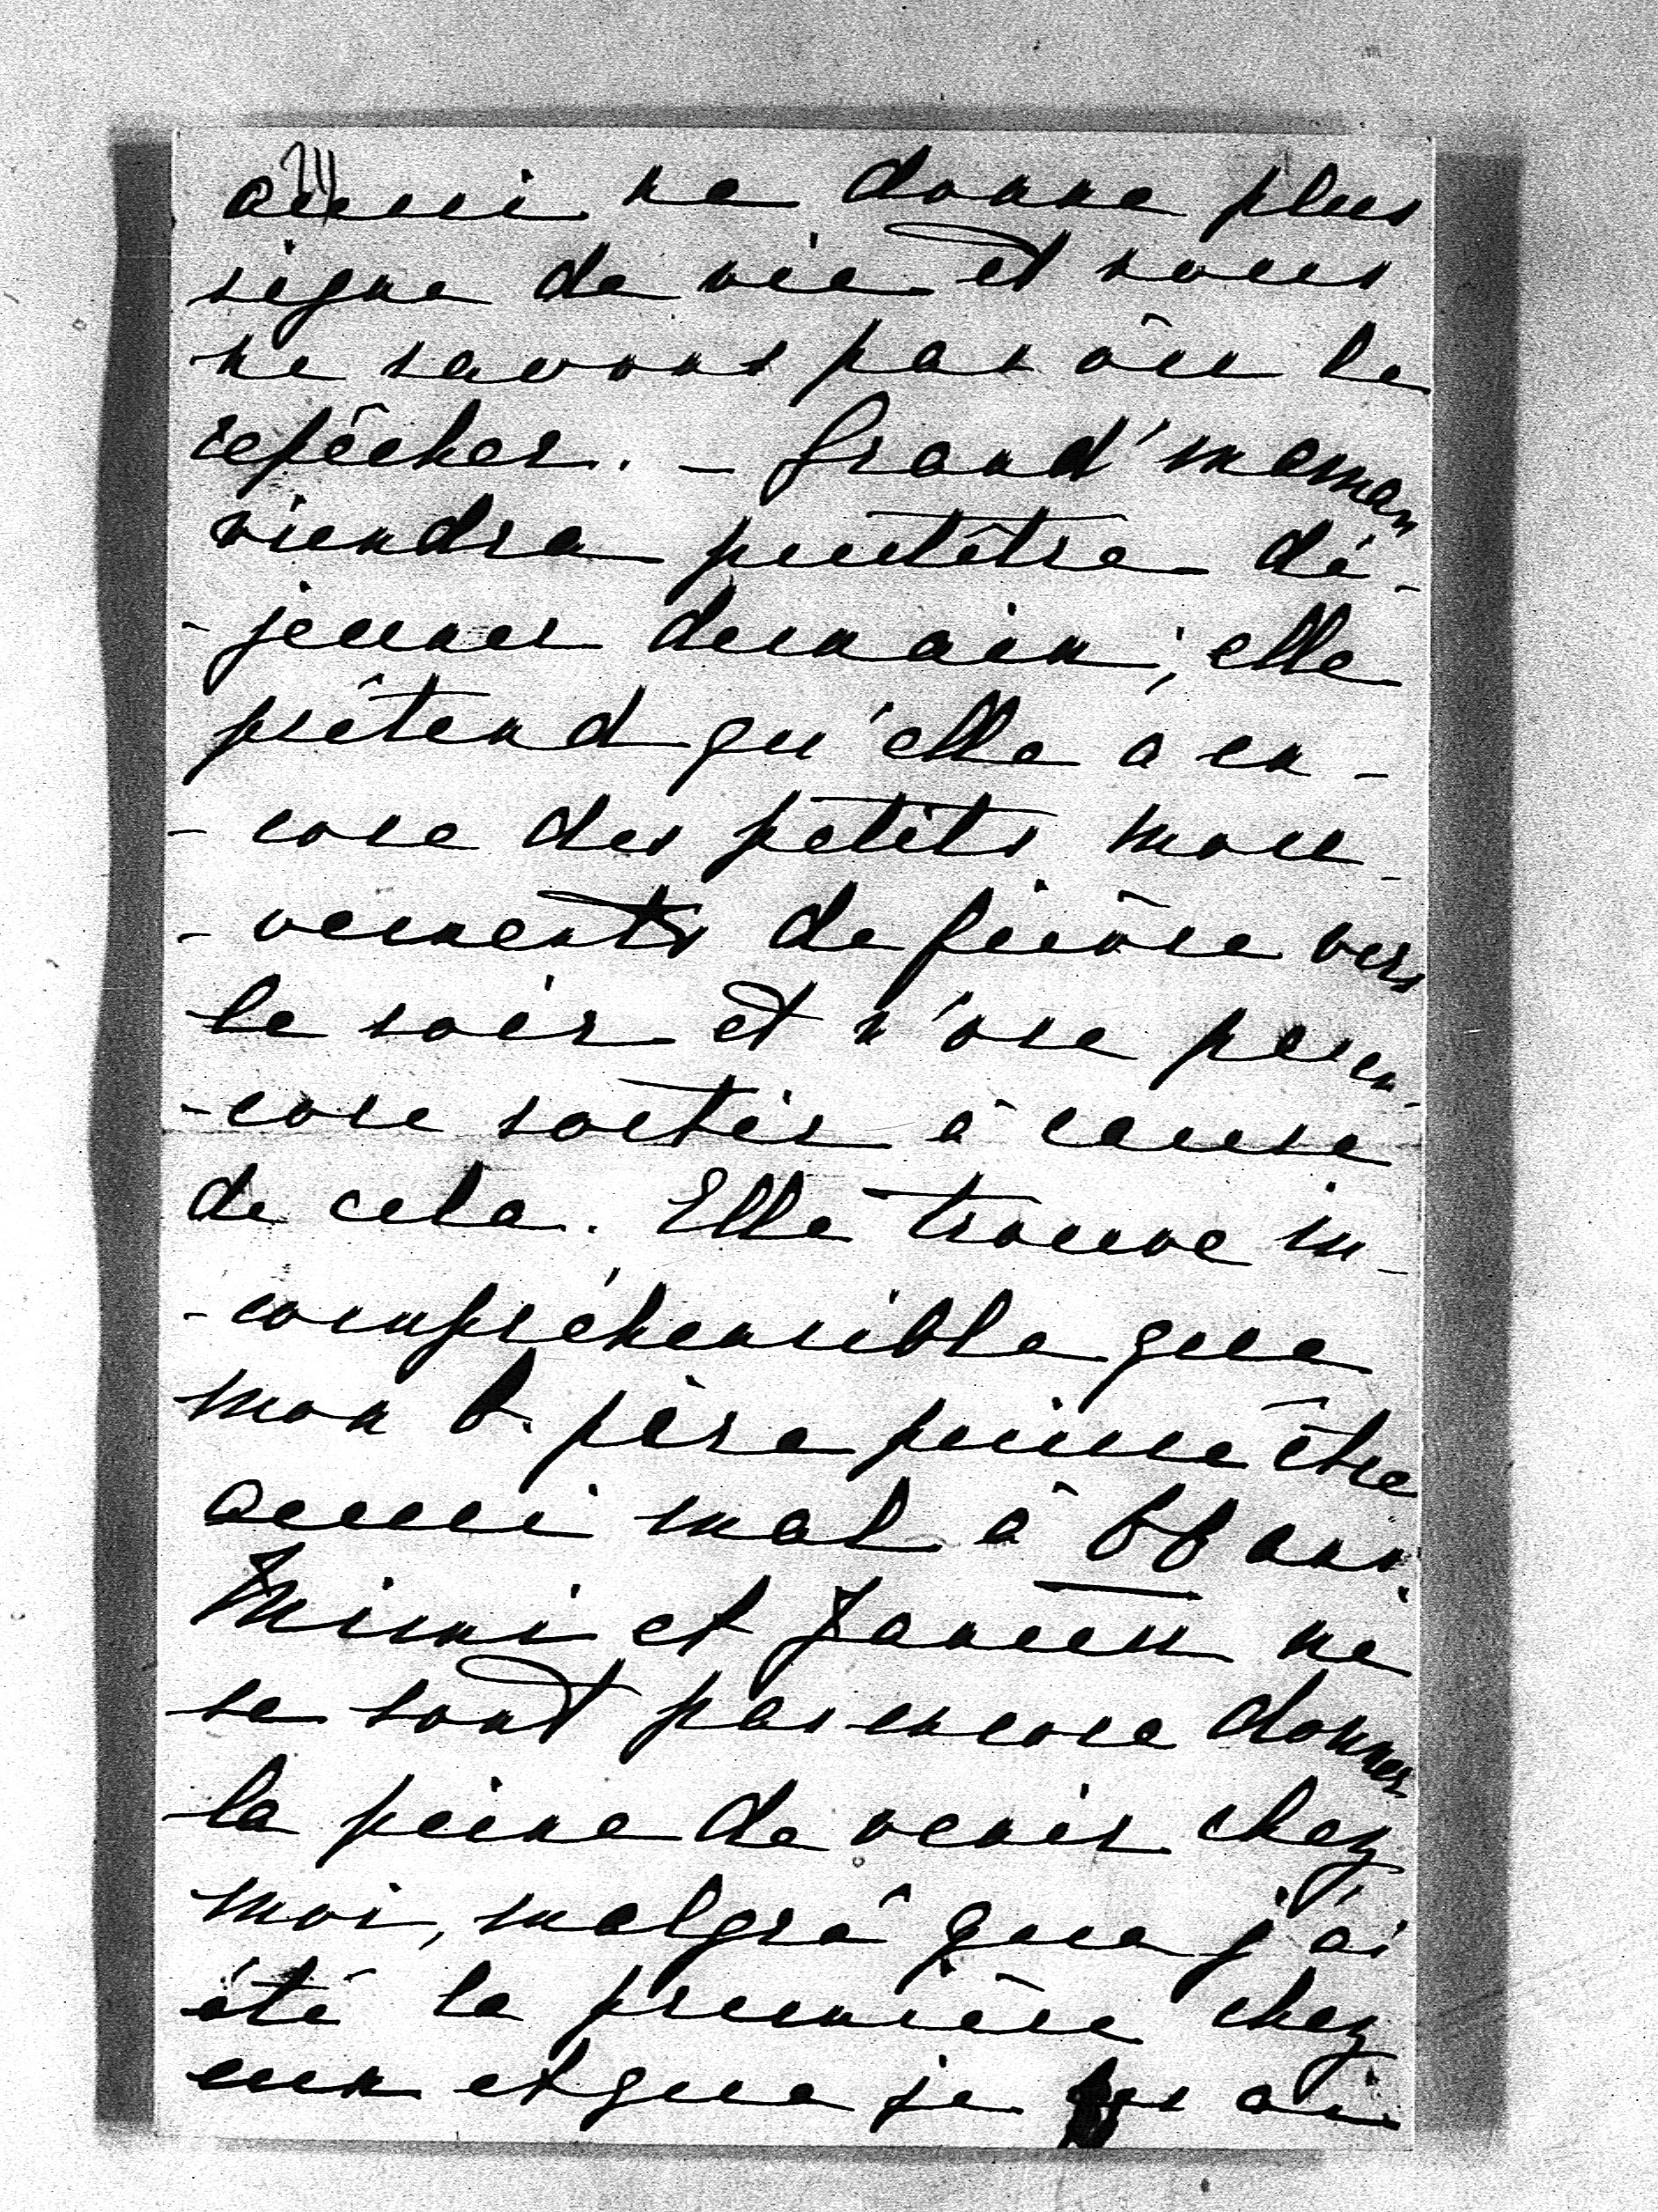 aussi ne donne plus
signe de vie et nous
ne savons pas où le
repêcher. - Grand'maman
viendra peutêtre dé-
-jeuner demain; elle
prétend qu'elle a en-
-core des petits mou-
-vements de fièvre vers
le soir et n'ose pas en-
-core sortir à cause
de cela. Elle trouve in-
-compréhensible que
mon b. père puisse être
aussi mal à 66 ans.
Mimi et ne
se sont pas encore donner
la peine de venir chez
moi, malgré que j'ai
été la première chez
eux et que je les ai